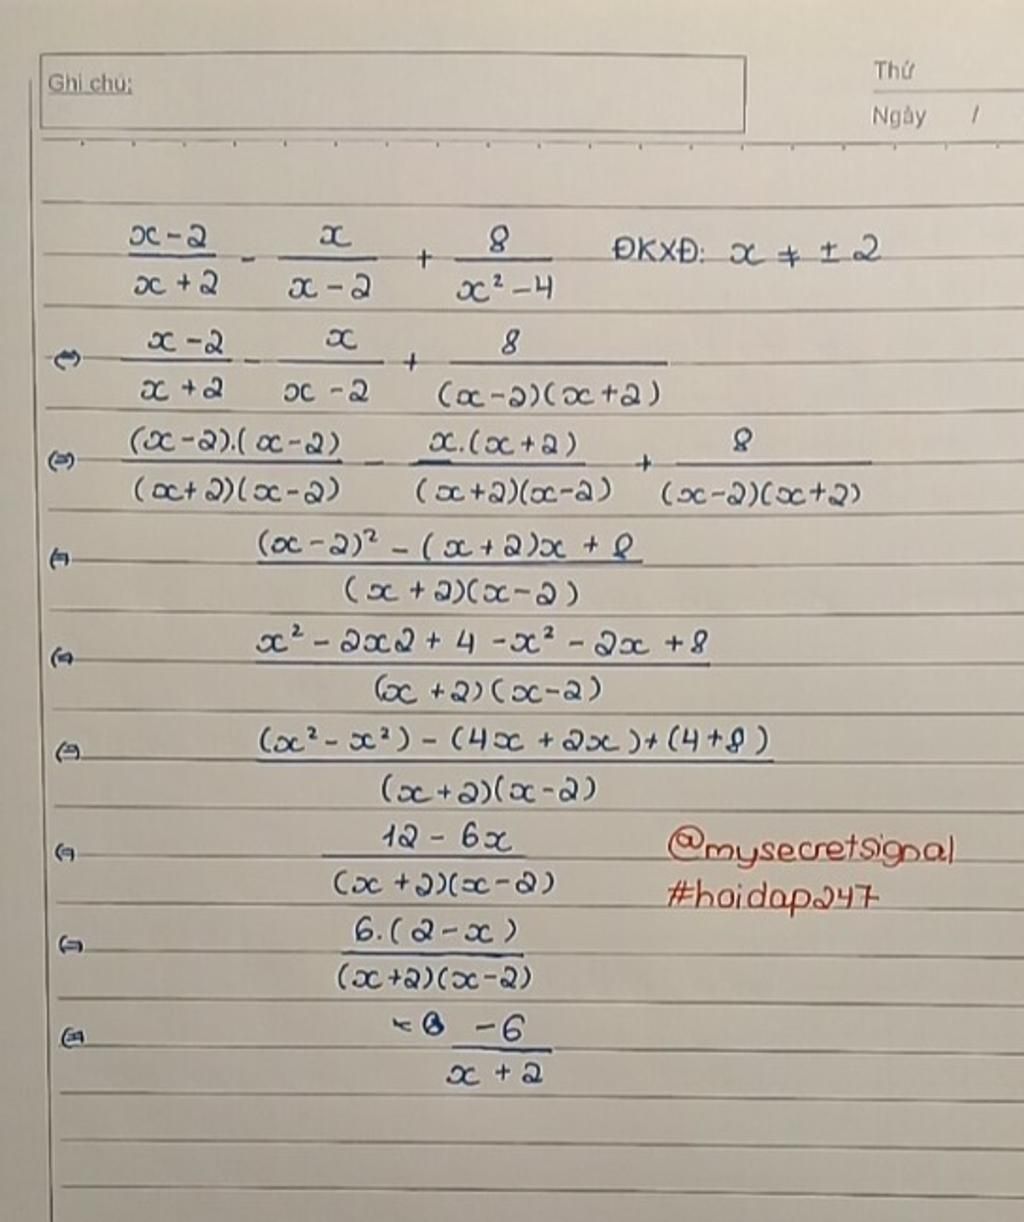 Ghi chú:
Thứ
Ngày /
(x-2)/(x+2) - x/(x-2) + 8/(x²-4) ĐKXĐ: x ≠ ± 2
(=) (x-2)/(x+2) - x/(x-2) + 8/((x-2)(x+2))
(=) ((x-2).(x-2))/((x+2)(x-2)) - (x.(x+2))/((x+2)(x-2)) + 8/((x-2)(x+2))
(=) ((x-2)² - (x+2)x + 8)/((x+2)(x-2))
(=) (x² - 2x2 + 4 - x² - 2x + 8)/((x+2)(x-2))
(=) ((x² - x²) - (4x + 2x) + (4+8))/((x+2)(x-2))
(=) (12 - 6x)/((x+2)(x-2))
@mysecretsignal
#hoidap247
(=) (6.(2-x))/((x+2)(x-2))
(=) -6/(x+2)